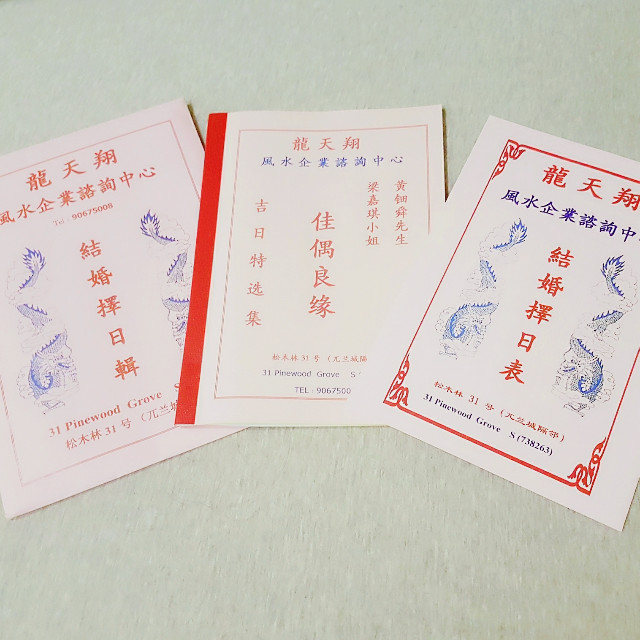 龍天翔
風水企業諮詢中心
Tel : 90675008
結婚擇日輯
31 Pinewood Grove S
松木林 31 号 (兀兰城
龍天翔
風水企業諮詢中心
黃鈿舜先生
梁嘉琪小姐
佳偶良缘
吉日特选集
松木林 31 号 (兀兰城隔
31 Pinewood Grove S
TEL : 9067500
龍天翔
風水企業諮詢中
結婚擇日表
松木林 31 号 (兀兰城隔邻)
31 Pinewood Grove S (738263)